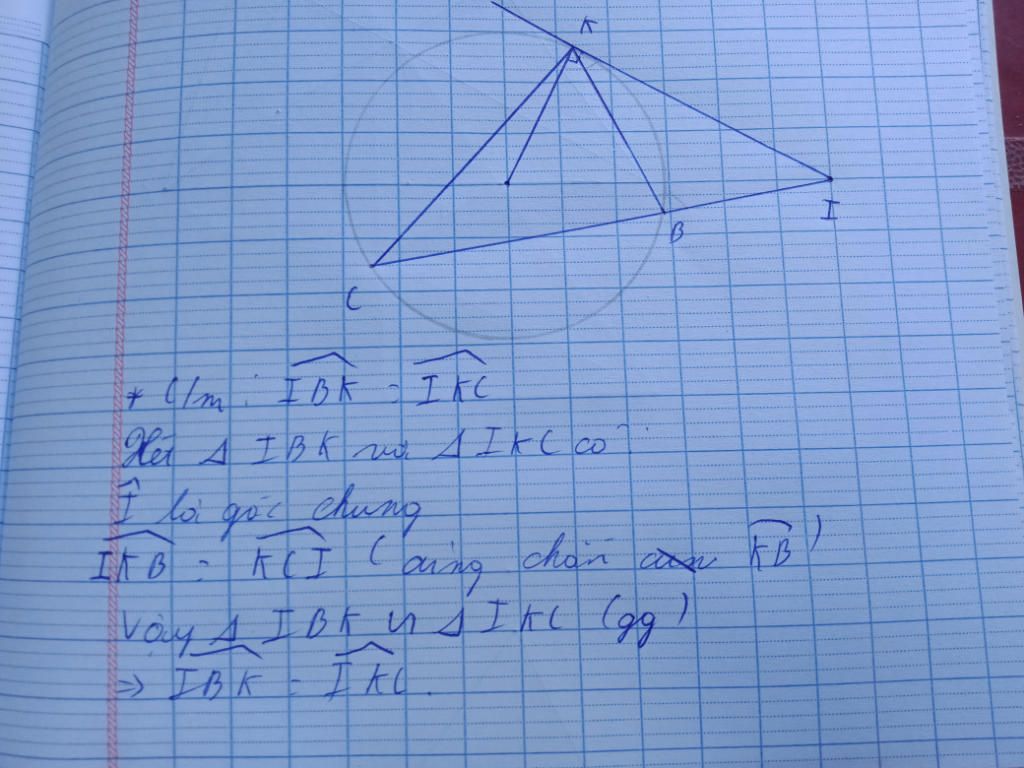 K
I
B
C
* C/m : \widehat{IBK} = \widehat{IKC}
Xét Δ IBK và Δ IKC có :
\widehat{I} là góc chung
\widehat{IKB} = \widehat{KCI} (cùng chắn \overset{\frown}{KB})
Vậy Δ IBK ∽ Δ IKC (gg)
⇒ \widehat{IBK} = \widehat{IKC}.